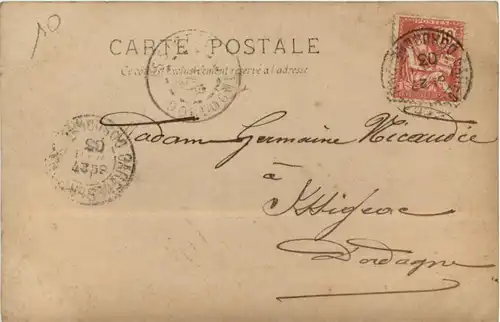 10
CARTE POSTALE
Ce côté est exclusivement réservé à l'adresse
Madame Germaine Nicaudie
à
Issigeac
Dordogne